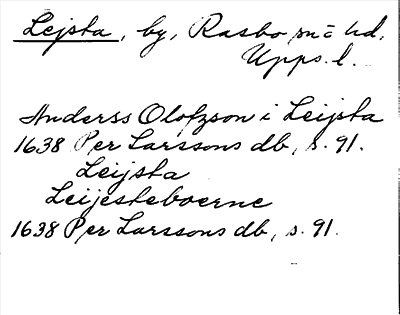 Lejsta, by, Rasbo sn = hd,
Upps. l.
Anderss Olofzson i Leijsta
1638 Per Larssons db, s. 91.
Leijsta
Leijesteboerne
1638 Per Larssons db, s. 91.